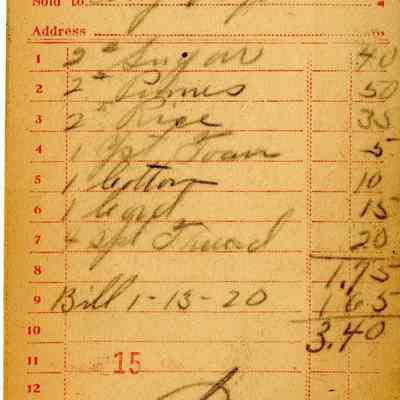 Sold to
Address
1 2# Sugar 40
2 2# Prunes 50
3 2# Rice 35
4 1 5
5 1 Cotton 10
6 1 15
7 4 Spl Thread 20
8 1.75
9 Bill 1-13-20 1 65
10 3.40
11 15
12